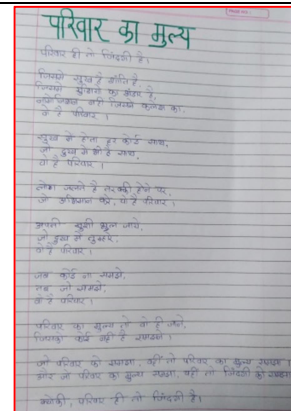 परिवार का मुल्य
परिवार ही तो जिंदगी है।
जिसमें सुख है शांति है,
जिसमें संस्कारों का भंडार है,
नहीं जिसमें
वो है परिवार ।
सुख में होता हर कोई साथ,
जो दुख में भी है साथ,
वो है परिवार ।
लोग जलते है तरक्की होने पर,
जो अभिमान करे, वो है परिवार ।
अपनी खुशी भूल जाये,
जो दुख में तुम्हारे,
वो है परिवार ।
जब कोई ना समझे,
तब जो समझे,
वो है परिवार ।
परिवार का मुल्य तो वो ही जाने,
जिसका कोई नहीं है
जो परिवार को समझा, वहीं तो परिवार का मुल्य समझा ।
और जो परिवार का मुल्य समझा, वहीं तो जिंदगी को समझा
क्योंकी, परिवार ही तो जिंदगी है।